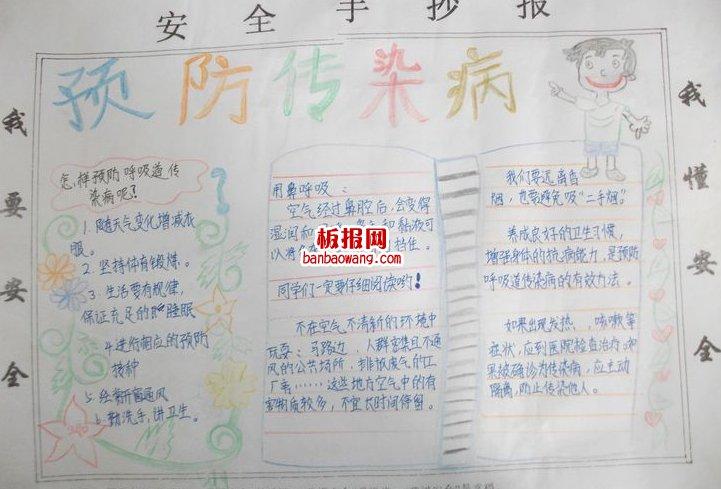 安全手抄报
预防传染病
我要安全
我懂安全
怎样预防呼吸道传
染病呢?
1.随天气变化增减衣
服。
2.坚持体育锻炼。
3.生活要有规律,
保证充足的睡眠
4.进行相应的预防
接种
5.经常开窗通风
6.勤洗手,讲卫生。
用鼻呼吸:
空气经过鼻腔后,会变得
湿润和
和黏液可
以将
粘住。
板报网
banbaowang.com
同学们一定要仔细阅读哟!
不在空气不清新的环境中
玩耍:马路边、人群密集且不通
风的公共场所,排放废气的工
厂等……这些地方空气中的有
害物质较多,不宜长时间停留。
我们要远离香
烟,也要避免吸“二手烟”。
养成良好的卫生习惯,
增强身体的抗病能力,是预防
呼吸道传染病的有效方法。
如果出现发热、咳嗽等
症状,应到医院检查治疗。如
果被确诊为传染病,应主动
隔离,防止传染他人。